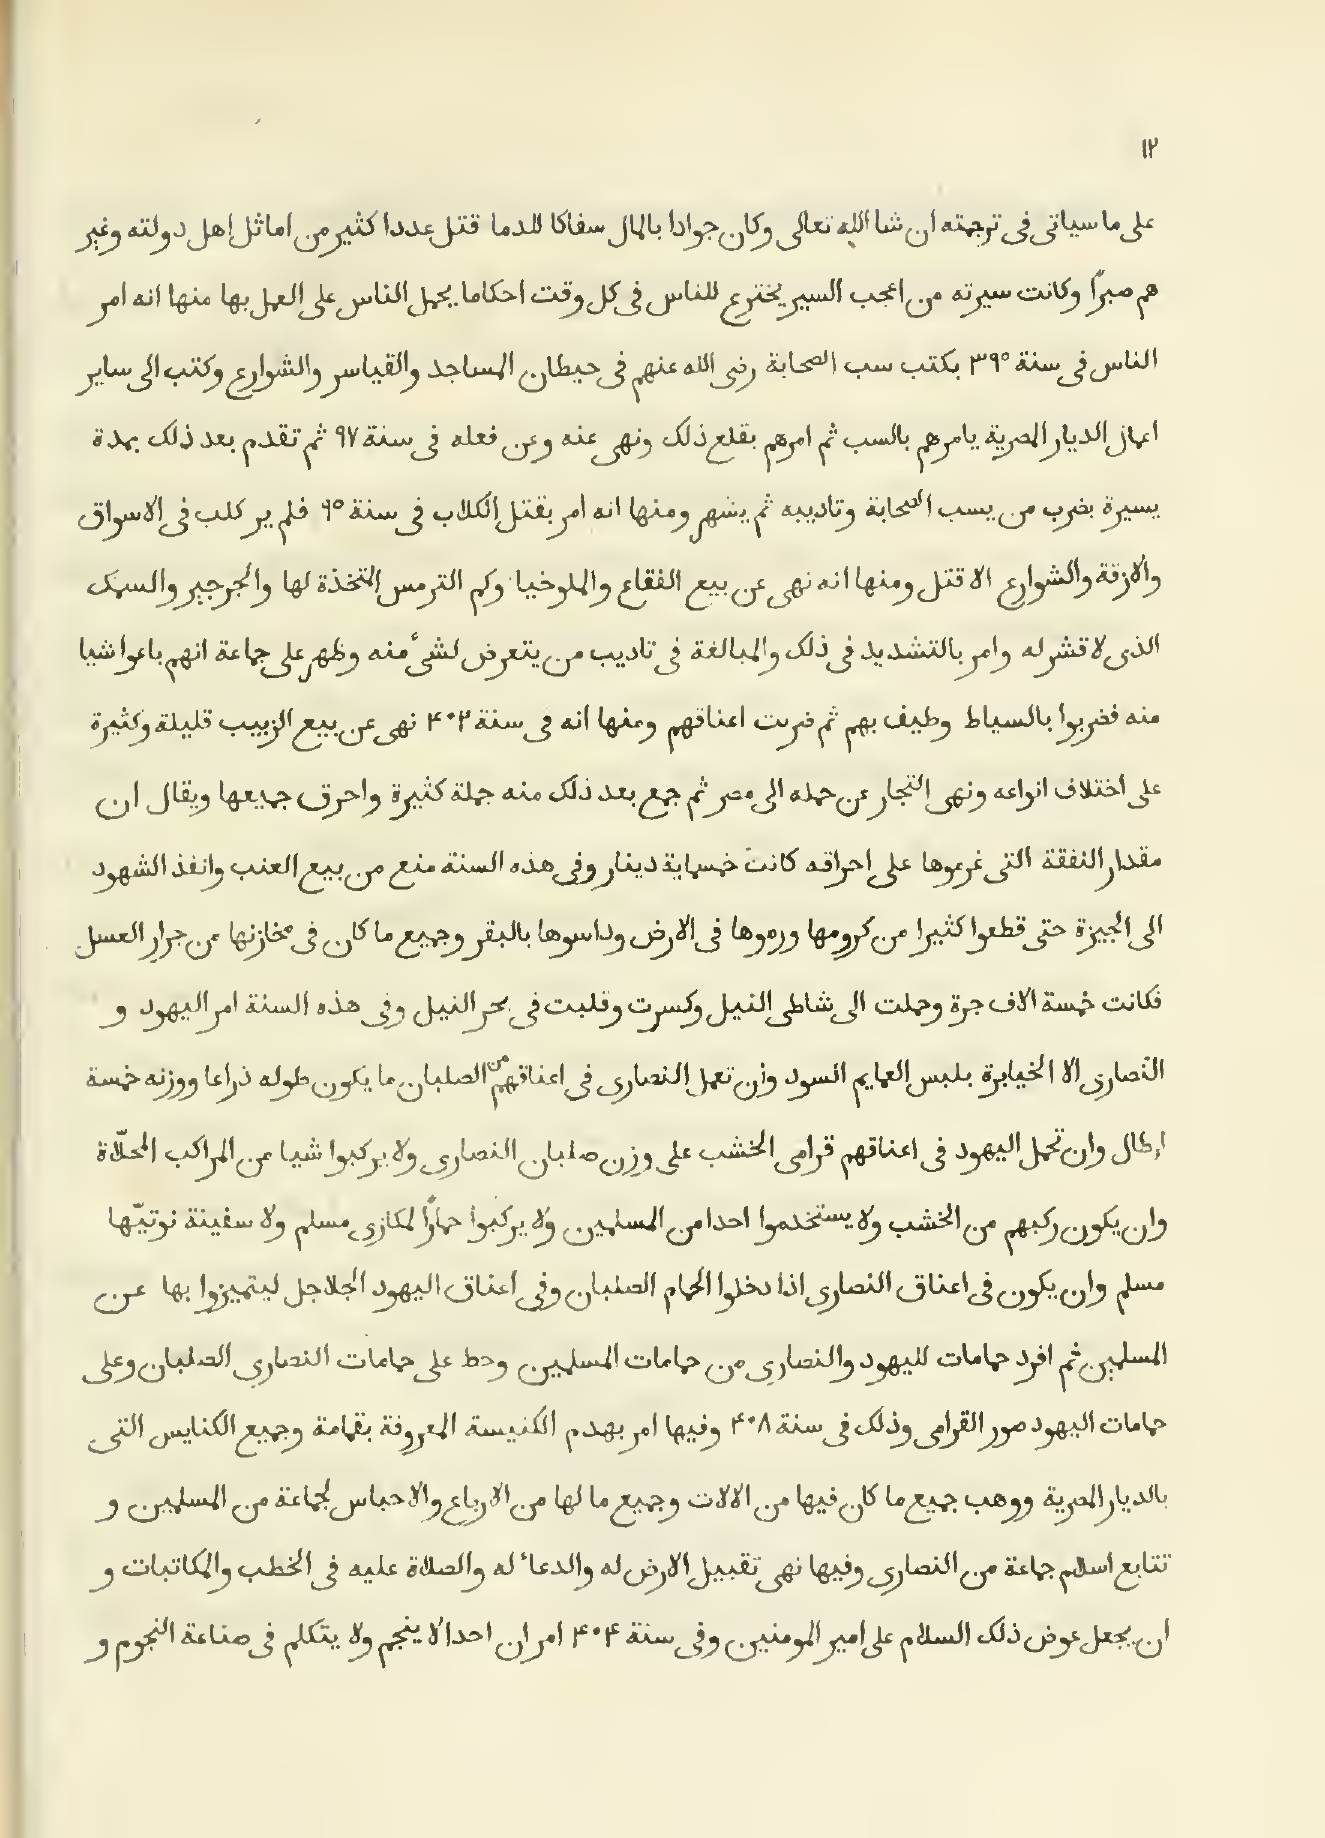 ١٢
على ما سياتى فى ترجمته ان شا الله تعالى وكان جوادا بالمال سفاكا للدما قتل عددا كثير من اماثل اهل دولته وغير
هم صبرًا وكانت سيرته من اعجب السير يخترع للناس فى كل وقت احكاما يحمل الناس على العمل بها منها انه امر
الناس فى سنة ٣٩٥ بكتب سب الصحابة رضى الله عنهم فى حيطان المساجد والقياسر والشوارع وكتب الى ساير
اعمال الديار المصرية يامرهم بالسب ثم امرهم بقلع ذلك ونهى عنه وعن فعله فى سنة ٩٧ ثم تقدم بعد ذلك بمدة
يسيرة بضرب من يسب الصحابة وتاديبه ثم يشهر ومنها انه امر بقتل الكلاب فى سنة ٩٥ فلم ير كلب فى الاسواق
والازقة والشوارع الا قتل ومنها انه نهى عن بيع الفقاع والملوخيا وكم الترمس المتخذة لها والجرجير والسمك
الذى لا قشر له وامر بالتشديد فى ذلك والمبالغة فى تاديب من يتعرض لشىٔ منه وظهر على جماعة انهم باعوا شيا
منه فضربوا بالسياط وطيف بهم ثم ضربت اعناقهم ومنها انه فى سنة ٤٠٢ نهى عن بيع الزبيب قليلة وكثيرة
على اختلاف انواعه ونهى التجار عن حمله الى مصر ثم جمع بعد ذلك منه جملة كثيرة واحرق جميعها ويقال ان
مقدار النفقة التى غرموها على احراقه كانت خمسماية دينار وفى هذه السنة منع من بيع العنب وانفذ الشهود
الى الجيزة حتى قطعوا كثيرا من كرومها ورموها فى الارض وداسوها بالبقر وجميع ما كان فى مخازنها من جرار العسل
فكانت خمسة الاف جرة وحملت الى شاطى النيل وكسرت وقلبت فى بحر النيل وفى هذه السنة امر اليهود و
النصارى الا الخيابرة بلبس العمايم السود وان تعمل النصارى فى اعناقهم من الصلبان ما يكون طوله ذراعا ووزنه خمسة
ارطال وان تحمل اليهود فى اعناقهم قرامى الخشب على وزن صلبان النصارى ولا يركبوا شيا من المراكب المحلّاة
وان يكون ركبهم من الخشب ولا يستخدموا احدا من المسلمين ولا يركبوا حمارًا لمكارى مسلم ولا سفينة نوتيّها
مسلم وان يكون فى اعناق النصارى اذا دخلوا الحمام الصلبان وفى اعناق اليهود الجلاجل ليتميزوا بها عن
المسلمين ثم افرد حمامات لليهود والنصارى من حمامات المسلمين وحط على حمامات النصارى الصلبان وعلى
حمامات اليهود صور القرامى وذلك فى سنة ٤٠٨ وفيها امر بهدم الكنيسة المعروفة بقمامة وجميع الكنايس التى
بالديار المصرية ووهب جميع ما كان فيها من الالات وجميع ما لها من الارباع والاحباس لجماعة من المسلمين و
تتابع اسلام جماعة من النصارى وفيها نهى تقبيل الارض له والدعاٴ له والصلاة عليه فى الخطب والمكاتبات و
ان يجعل عوض ذلك السلام على امير المومنين وفى سنة ٤٠٤ امر ان احدا لا ينجم ولا يتكلم فى صناعة النجوم و